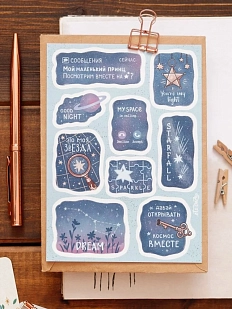 СООБЩЕНИЯ СЕЙЧАС
Мой маленький принц
Посмотрим вместе на ?
You're my
light
GOOD
NIGHT
MY SPACE
is online
STARFALL
Это моя
ЗВЕЗДА
SPARKLE
DREAM
ДАВАЙ
ОТКРЫВАТЬ
КОСМОС
ВМЕСТЕ